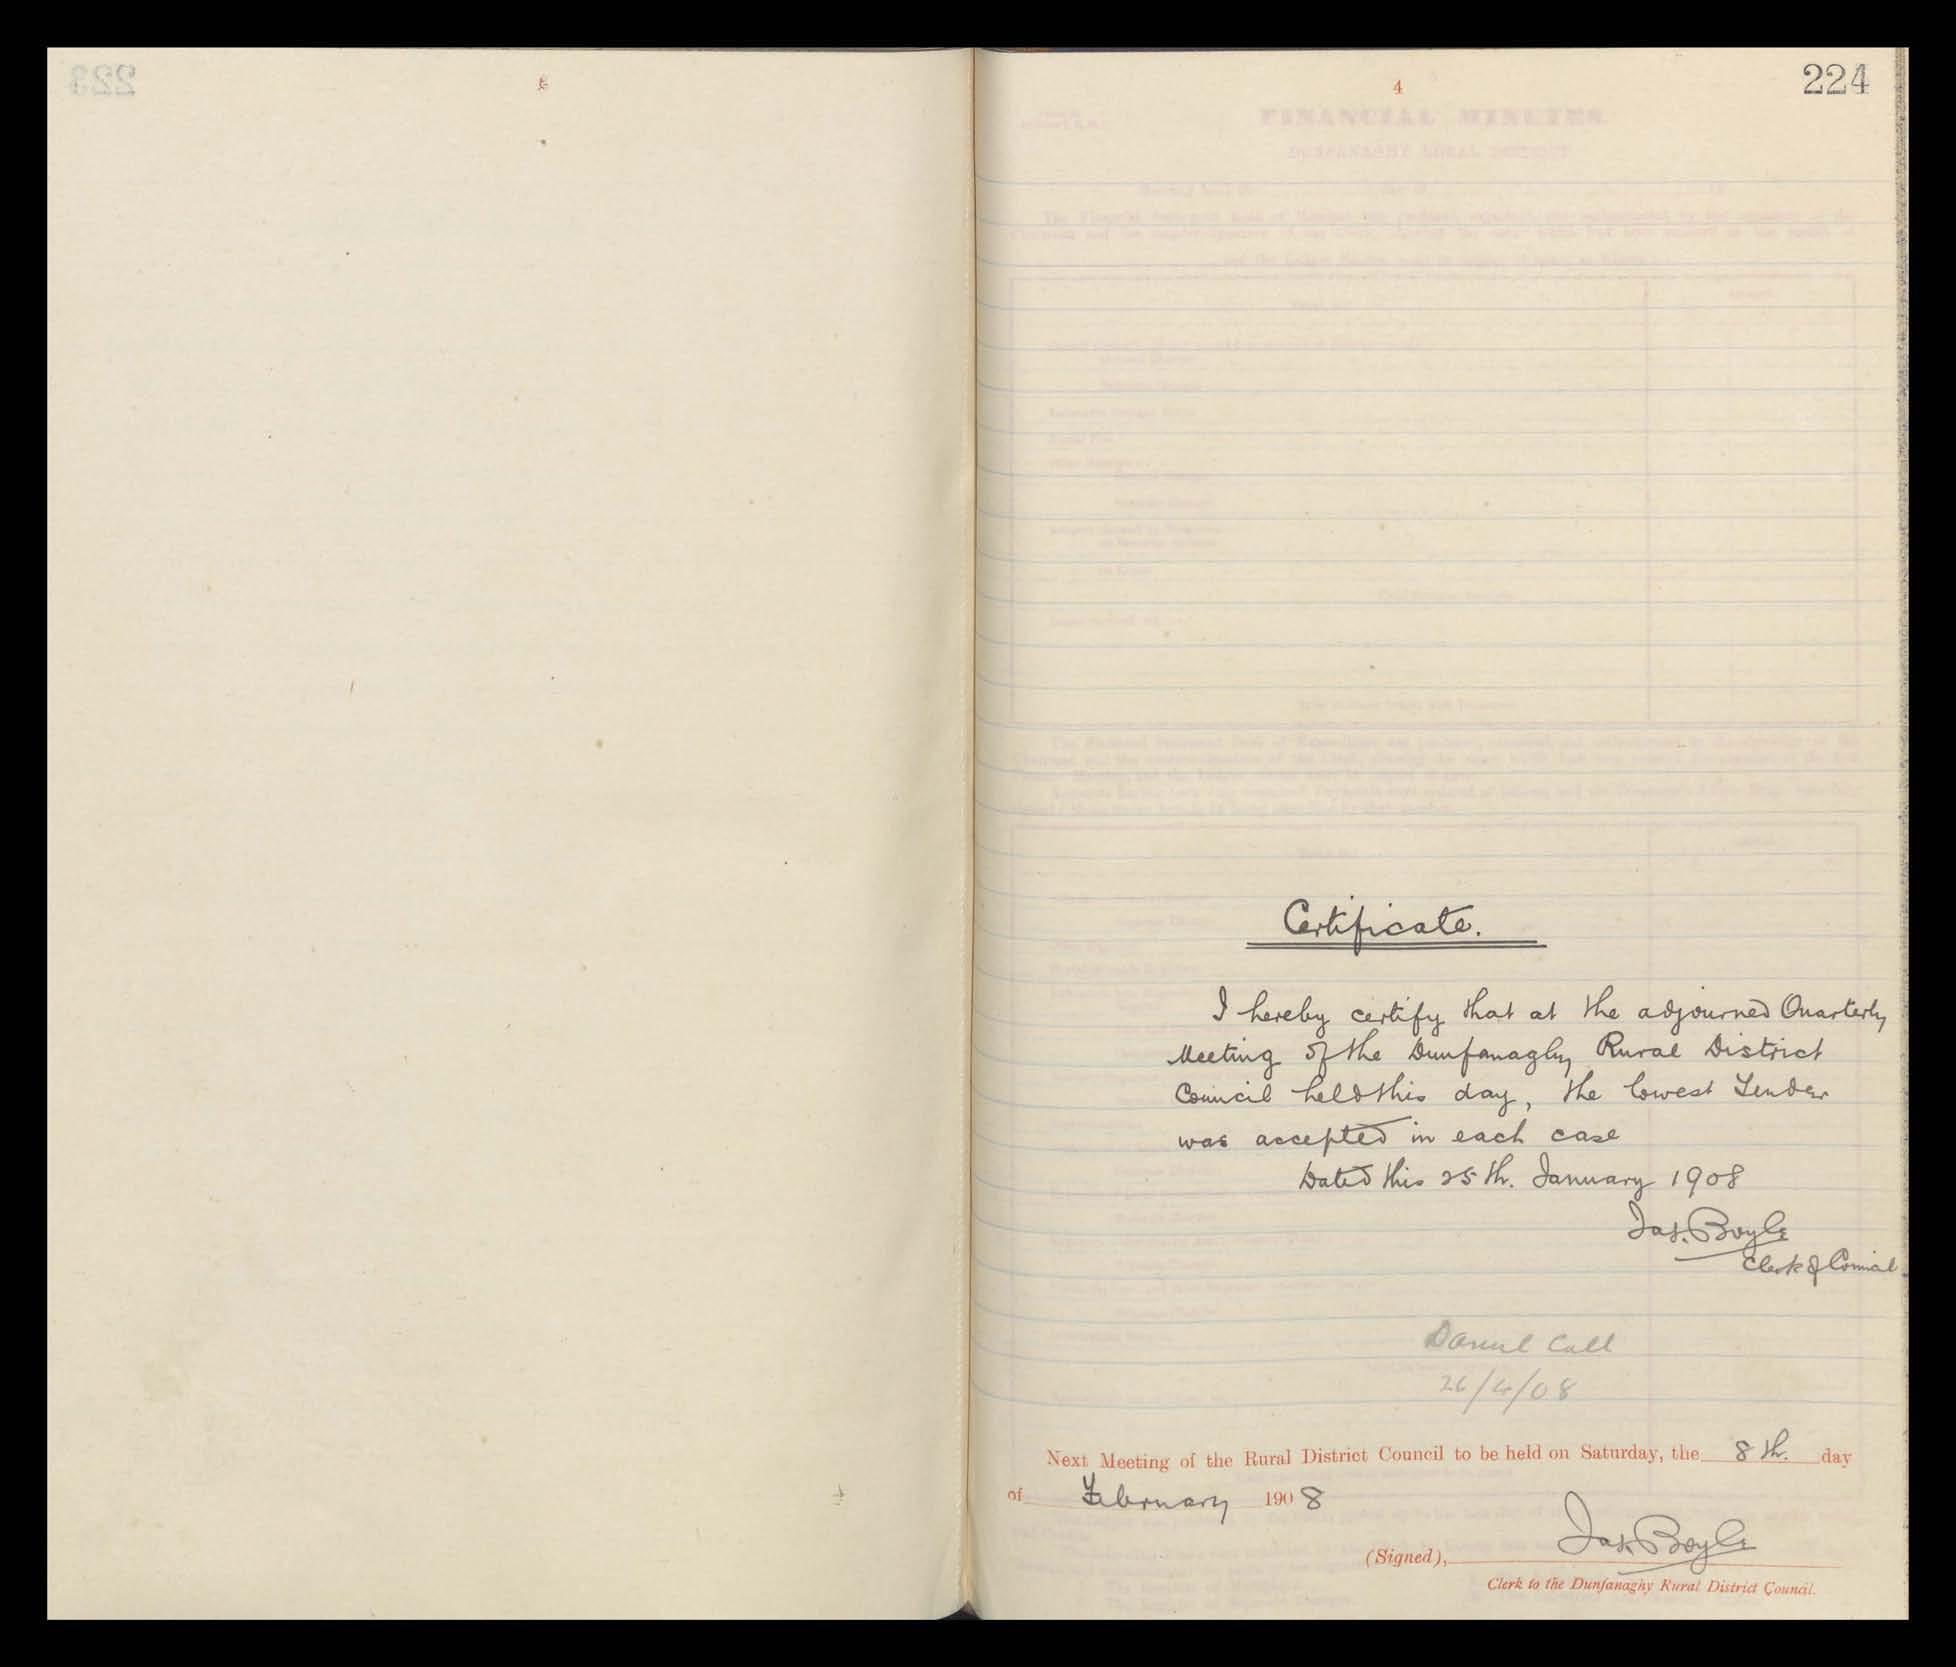 4
224
Certificate.
I hereby certify that at the adjourned Quarterly
Meeting of the Dunfanaghy Rural District
Council held this day, the lowest Tender
was accepted in each case
Dated this 25th. January 1908
Jas. Boyle
Clerk of Council.
26/4/08
Next Meeting of the Rural District Council to be held on Saturday, the 8th. day
of February 1908
(Signed), Jas. Boyle
Clerk to the Dunfanaghy Rural District Council.